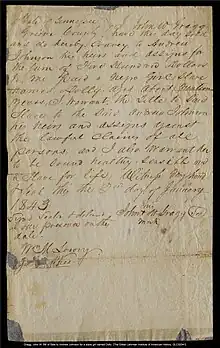 State of Tennessee
Greene County I John W. Gragg
have this day sold
and do hereby Convey to Andrew
Johnson his heirs and assigns for
the Sum of Five Hundred Dollars
to me Paid a Negro Girl Slave
named Dolly aged about
years, I warrant the Title to Said
Slave to the Said Andrew Johnson
his heirs and assigns against
the Lawful Claims of all
persons and I also warrant
to be Sound healthy Sensible and
a Slave for life, Witness my hand
Seal this the 2nd day of January
1843
Signed Sealed & delivered
in our presence on the
date
his
John W. Gragg
mark
W M Lowry